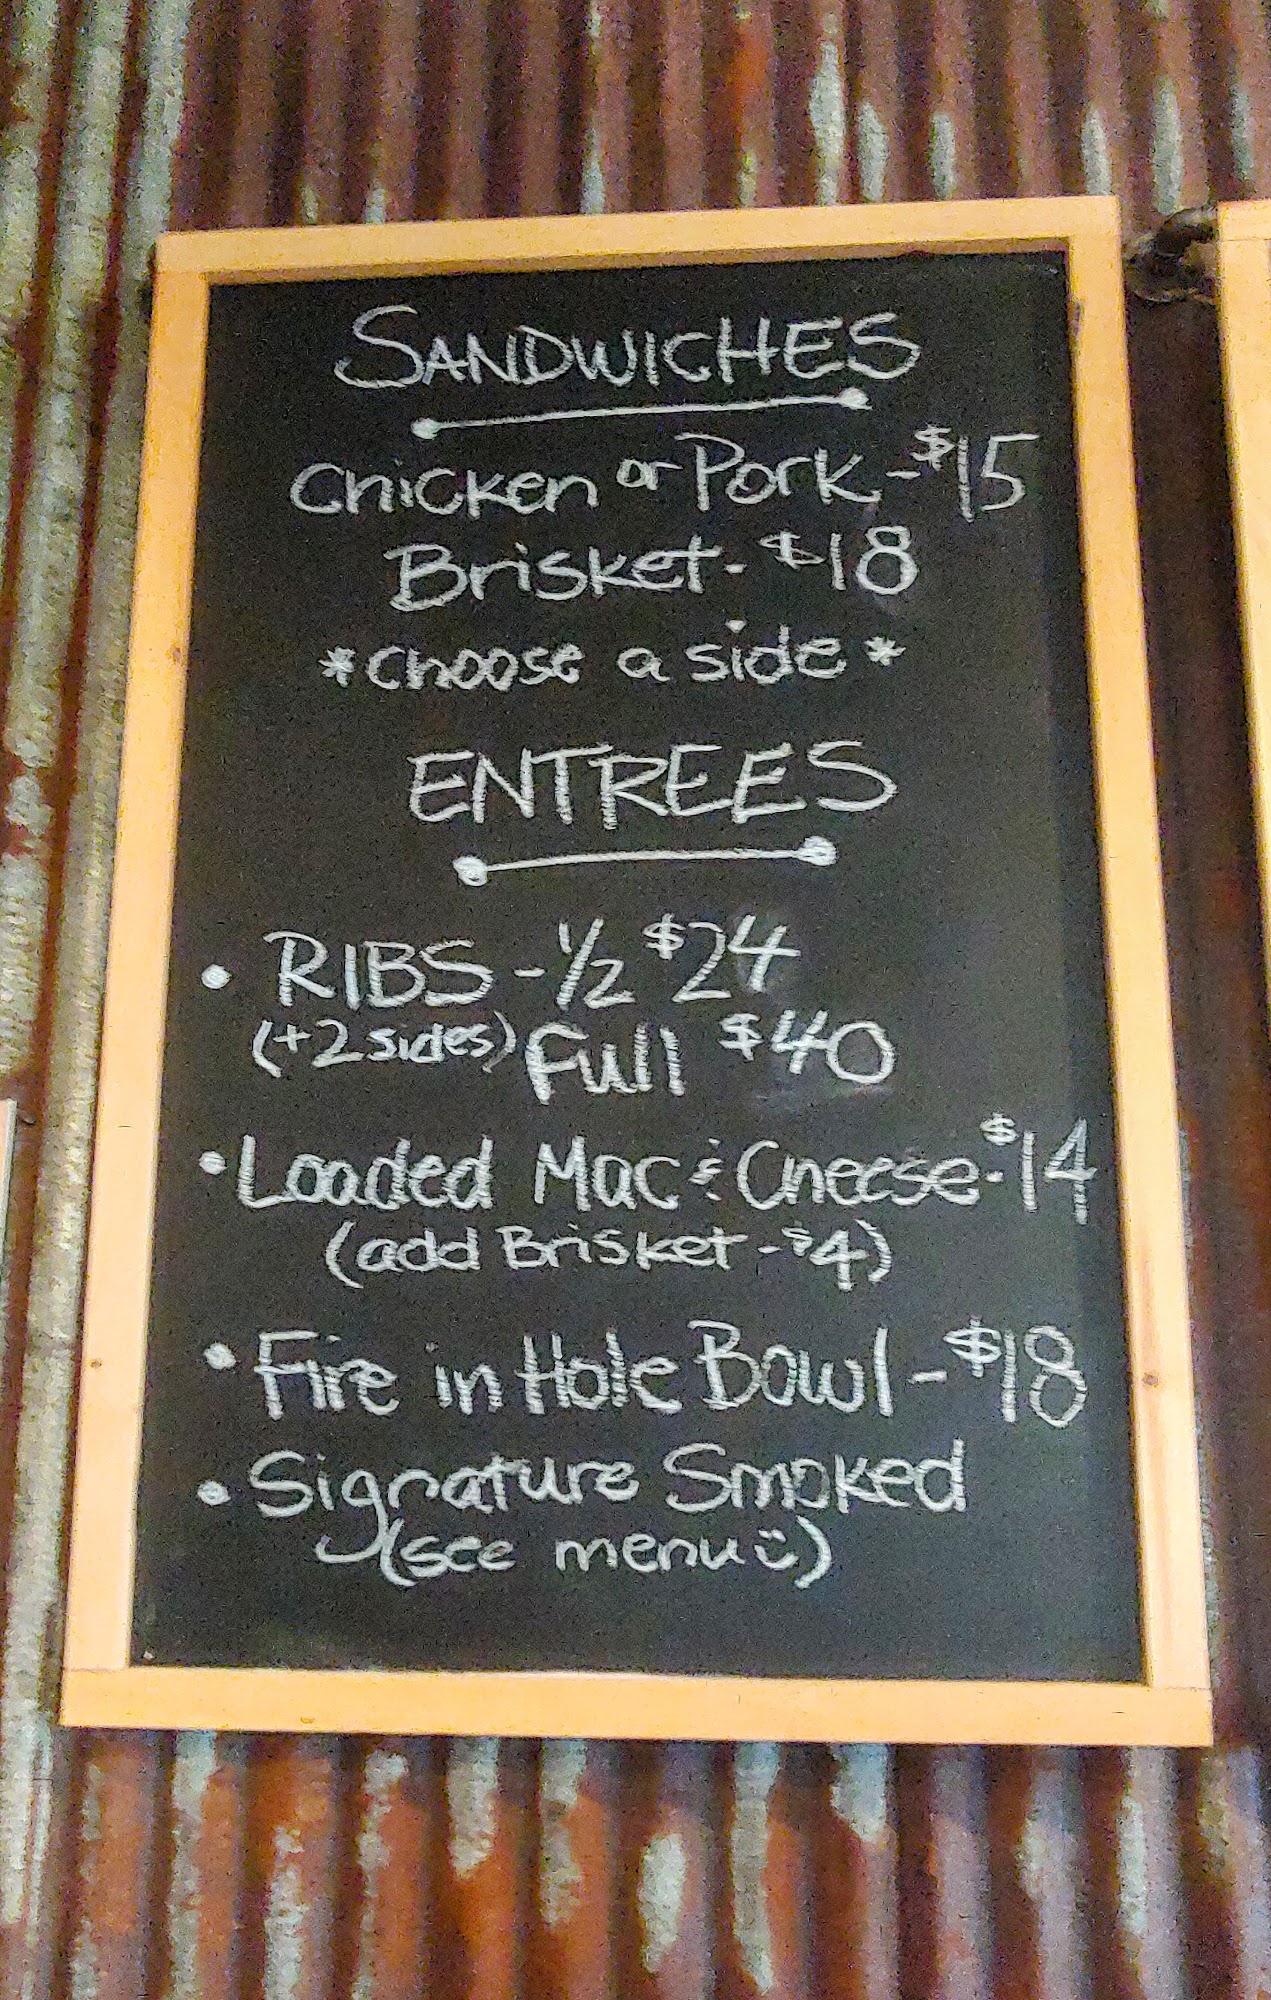 SANDWICHES
Chicken or Pork - $15
Brisket - $18
*Choose a side*
ENTREES
• RIBS - 1/2 $24
(+2 sides) Full $40
• Loaded Mac & Cheese - $14
(add Brisket - $4)
• Fire in Hole Bowl - $18
• Signature Smoked
(see menu ü)